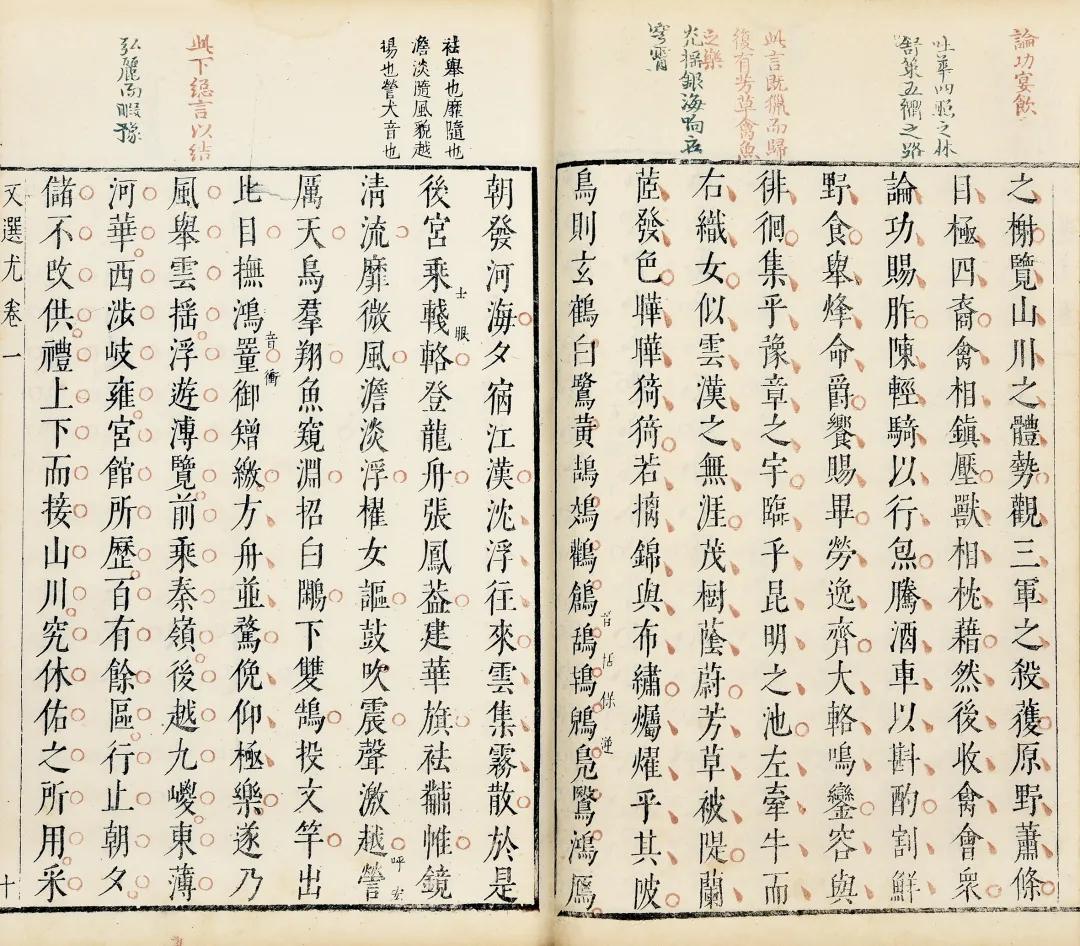 論功宴飲
吐華四照之林
舒策五衢之路
此言既獵而歸
復有芳草禽魚
之樂
光搖銀海响在
之榭覽山川之體勢觀三軍之殺獲原野蕭條
目極四裔禽相鎮壓獸相枕藉然後收禽會衆
論功賜胙陳輕騎以行炰騰酒車以斟酌割鮮
野食舉烽命爵饗賜畢勞逸齊大輅鳴鑾容與
徘徊集乎豫章之宇臨乎昆明之池左牽牛而
右織女似雲漢之無涯茂樹蔭蔚芳草被隄蘭
茝發色曄曄猗猗若摛錦與布繡爥燿乎其陂
鳥則玄鶴白鷺黃鵠鵁鸛鶬鴰鴇鶂鳧鷖鴻鴈
苔括保逆
祛舉也靡隨也
澹淡隨風貌越
揚也營大音也
此下總言以結
弘麗而暇豫
朝發河海夕宿江漢沈浮往來雲集霧散於是
後宮乘輚輅登龍舟張鳳葢建華旗祛黼帷鏡
士眼
清流靡微風澹淡浮櫂女謳鼓吹震聲激越謍
呼宏
厲天鳥羣翔魚窺淵招白鷴下雙鵠投文竿出
比目撫鴻罿御矰繳方舟並騖俛仰極樂遂乃
音衝
風舉雲搖浮遊溥覽前乘秦嶺後越九嵕東薄
河華西涉岐雍宮館所歷百有餘區行止朝夕
儲不改供禮上下而接山川究休佑之所用采
文選尤卷一
十